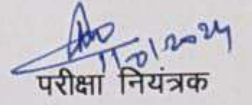 11/01/2024
परीक्षा नियंत्रक